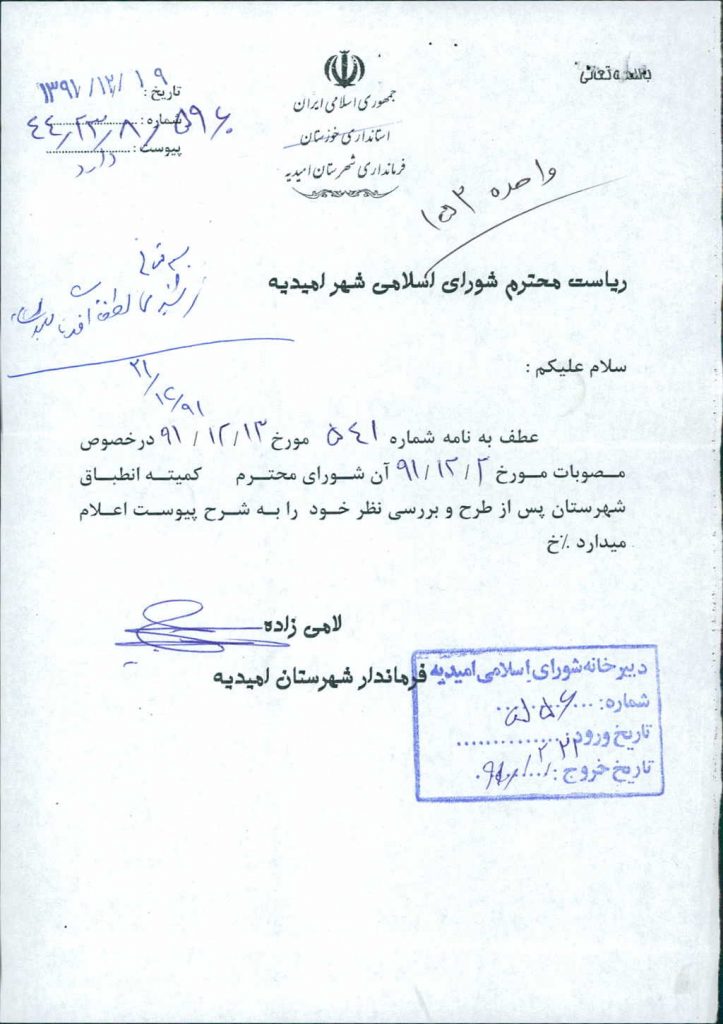 باسمه تعالی
جمهوری اسلامی ایران
استانداری خوزستان
فرمانداری شهرستان امیدیه
تاریخ : ۱۳۹۱/۱۲/۱۹
شماره :
پیوست : دارد
ریاست محترم شورای اسلامی شهر امیدیه
۲۱/۱۲/۹۱
سلام علیکم :
عطف به نامه شماره ۵۴۱ مورخ ۹۱/۱۲/۱۳ درخصوص
مصوبات مورخ ۹۱/۱۲/۲ آن شورای محترم کمیته انطباق
شهرستان پس از طرح و بررسی نظر خود را به شرح پیوست اعلام
میدارد ٪خ
لامی زاده
فرماندار شهرستان امیدیه
دبیرخانه شورای اسلامی امیدیه
شماره:
تاریخ ورود:
تاریخ خروج: